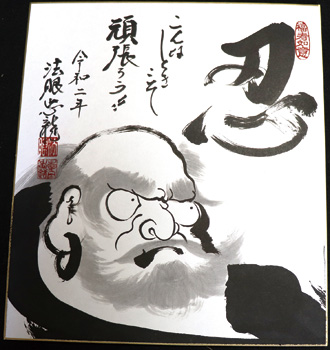 忍
こんな
ときこそ
頑張ろう!!
令和二年
法眼